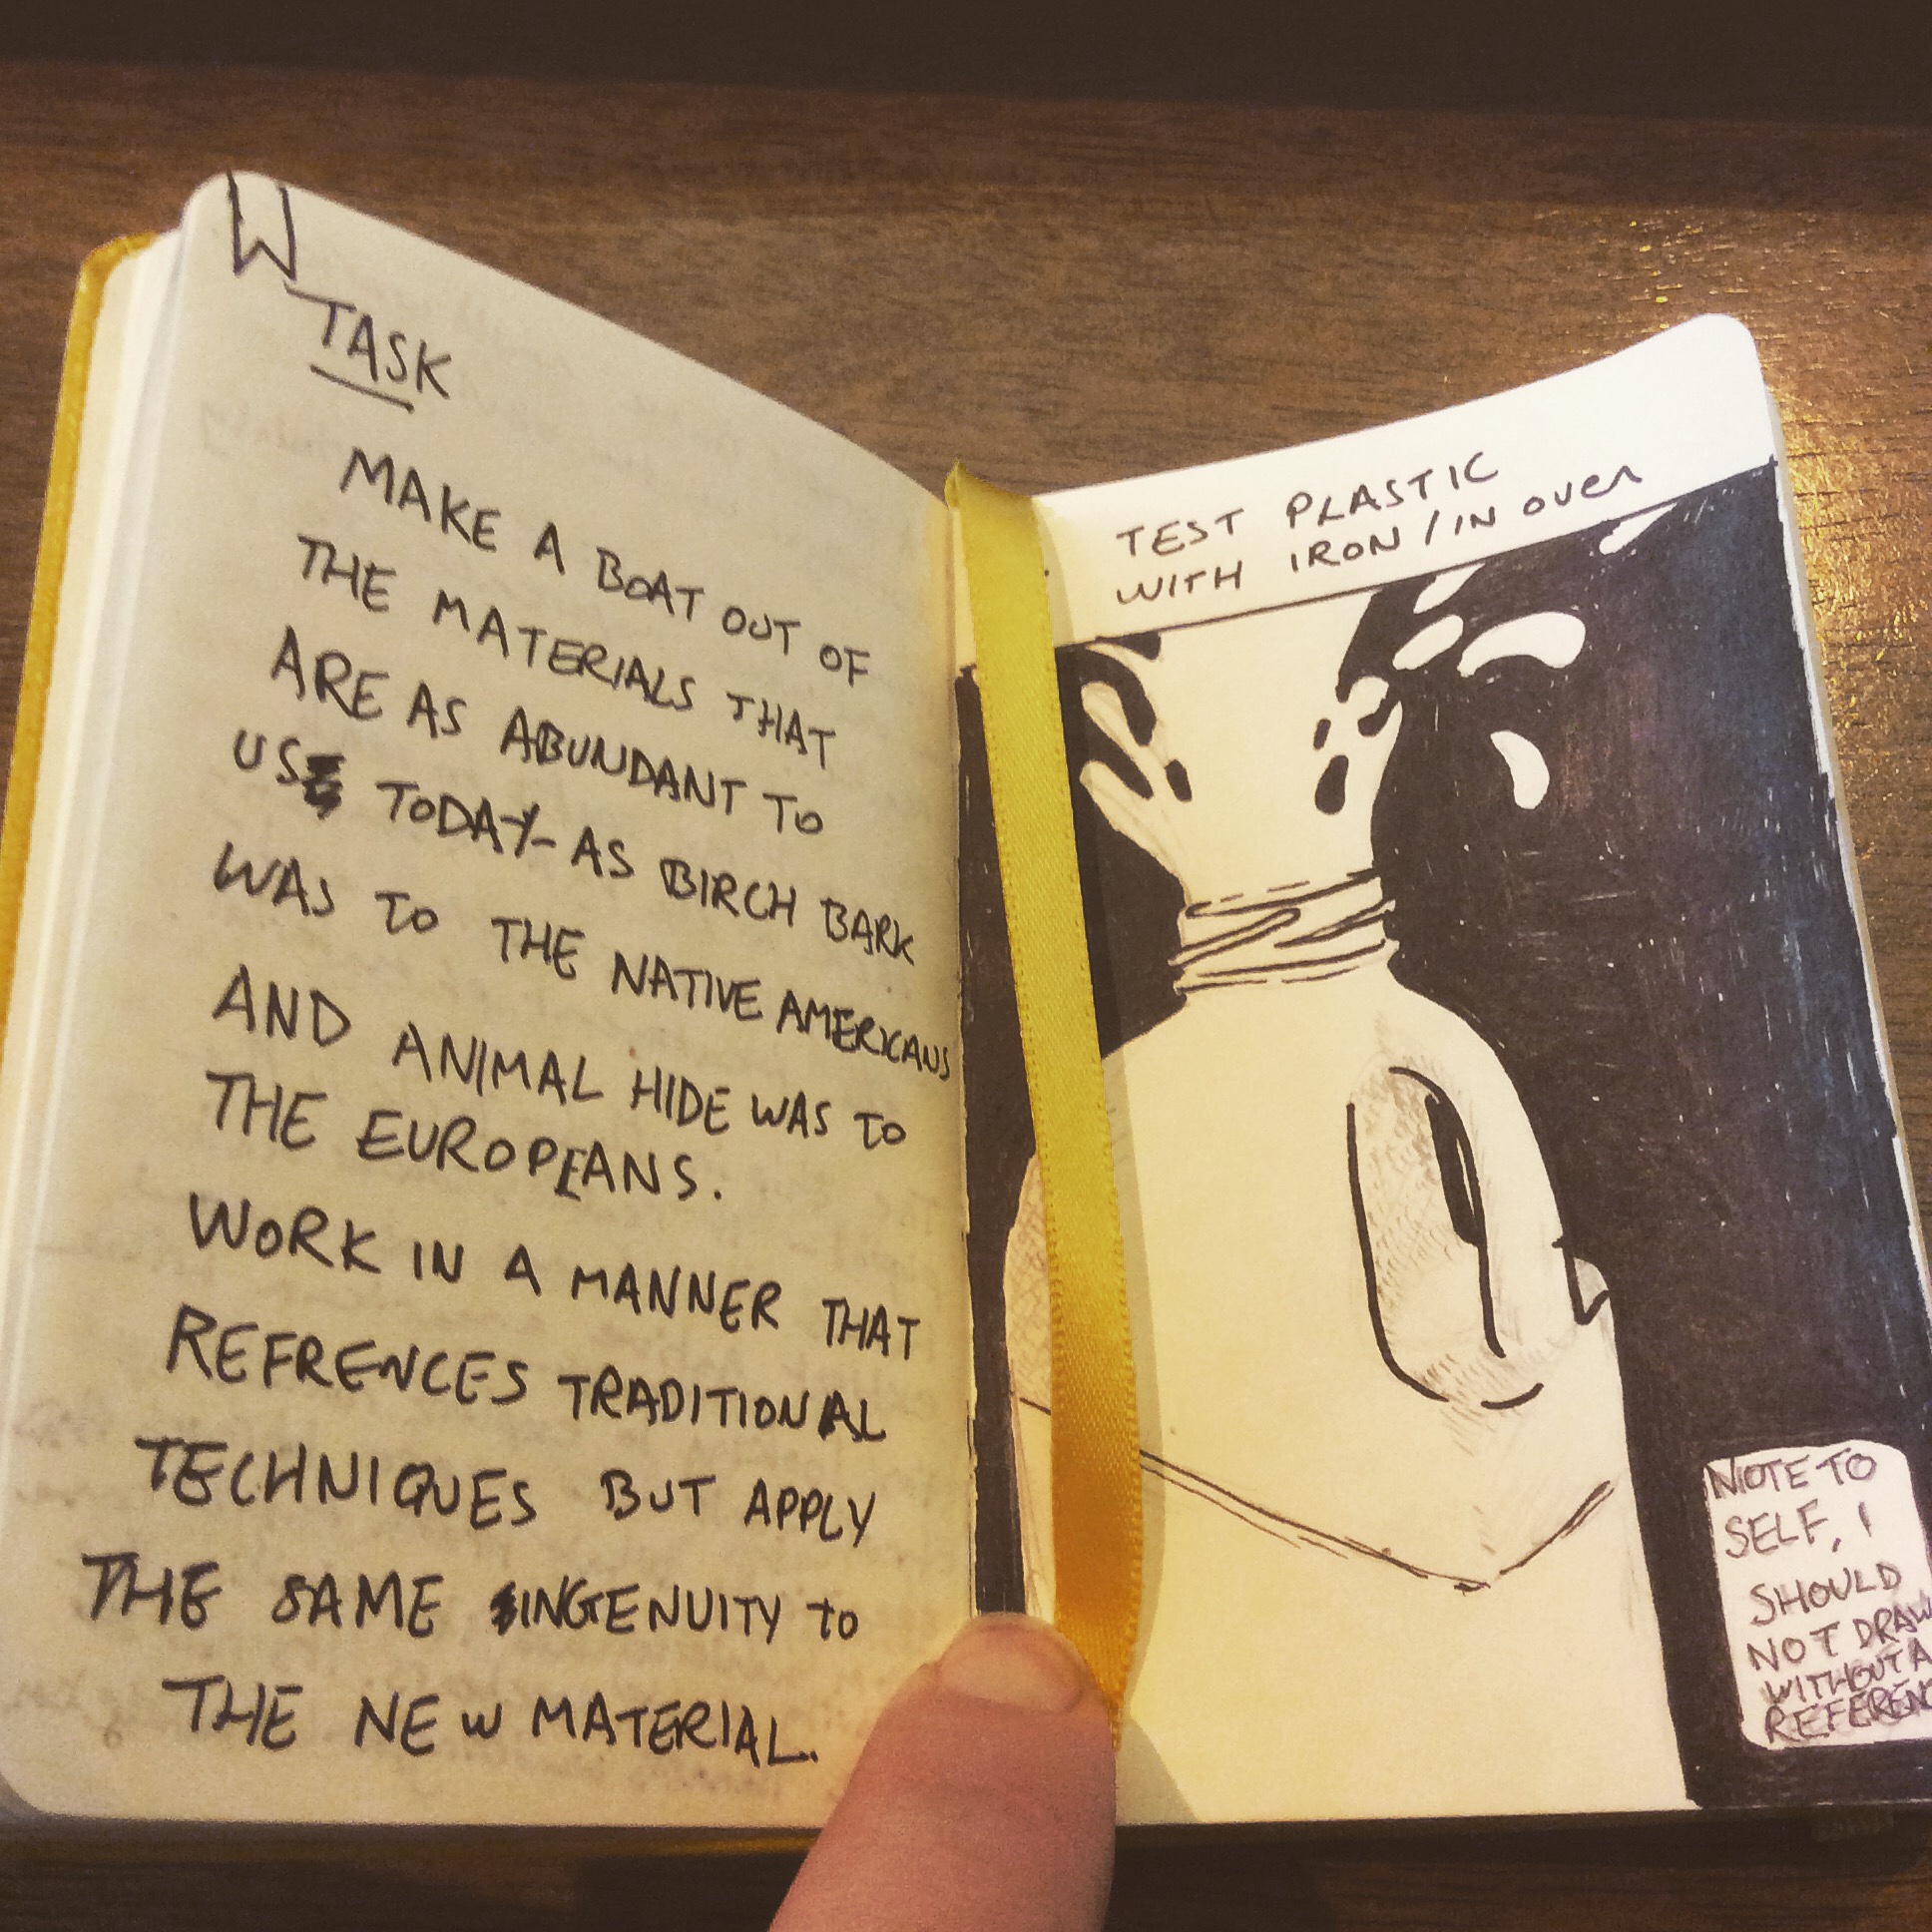 W
TASK
MAKE A BOAT OUT OF
THE MATERIALS THAT
ARE AS ABUNDANT TO
US TODAY- AS BIRCH BARK
WAS TO THE NATIVE AMERICANS
AND ANIMAL HIDE WAS TO
THE EUROPEANS.
WORK IN A MANNER THAT
REFRENCES TRADITIONAL
TECHNIQUES BUT APPLY
THE SAME INGENUITY TO
THE NEW MATERIAL.
TEST PLASTIC
WITH IRON / IN OVEN
NOTE TO
SELF, I
SHOULD
NOT DRAW
WITHOUT A
REFEREN